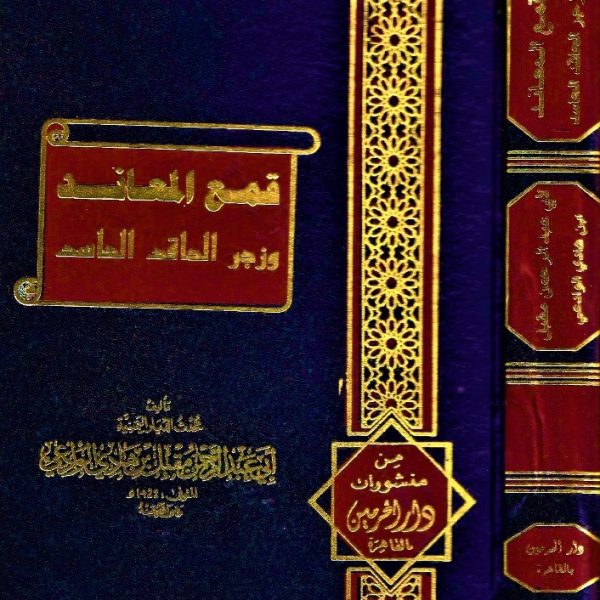 قمع المعاند
وزجر الحاقد الحاسد
تأليف
محدث الديار اليمنية
أبي عبد الرحمن مقبل بن هادي الوادعي
المتوفى: ١٤٢٢هـ
رحمه الله
من
منشورات
دار الحرمين
بالقاهرة
قمع المعاند
وزجر الحاقد الحاسد
لأبي عبد الرحمن مقبل
ابن هادي الوادعي
دار الحرمين
بالقاهرة